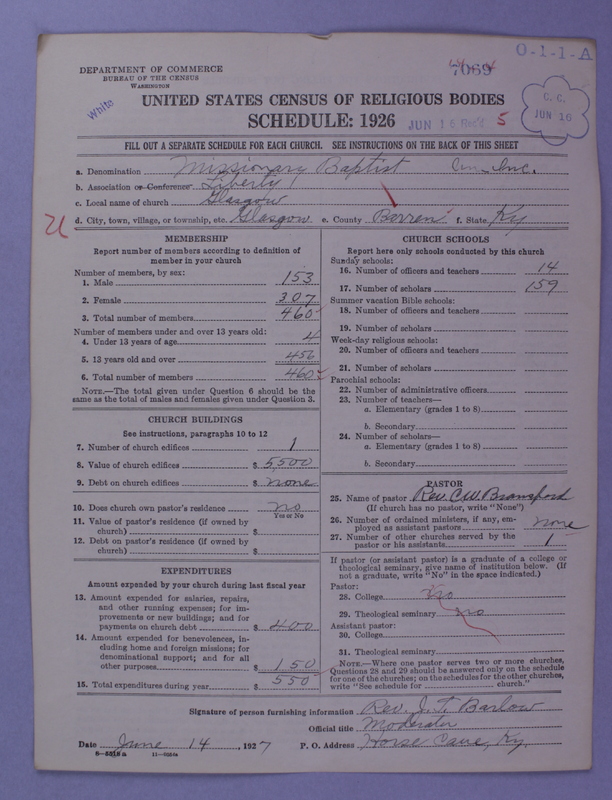 O-1-1-A
DEPARTMENT OF COMMERCE
BUREAU OF THE CENSUS
WASHINGTON
7069
White
UNITED STATES CENSUS OF RELIGIOUS BODIES
SCHEDULE: 1926
JUN 16 Rec'd 5
C. C.
JUN 16
FILL OUT A SEPARATE SCHEDULE FOR EACH CHURCH. SEE INSTRUCTIONS ON THE BACK OF THIS SHEET
a. Denomination Missionary Baptist Un-Inc.
b. Association or Conference. Liberty
c. Local name of church Glasgow
d. City, town, village, or township, etc. Glasgow e. County Barren f. State. Ky
MEMBERSHIP
Report number of members according to definition of
member in your church
Number of members, by sex:
1. Male 153
2. Female 307
3. Total number of members 460
Number of members under and over 13 years old:
4. Under 13 years of age 4
5. 13 years old and over 456
6. Total number of members 460
NOTE.—The total given under Question 6 should be the
same as the total of males and females given under Question 3.
CHURCH BUILDINGS
See instructions, paragraphs 10 to 12
7. Number of church edifices 1
8. Value of church edifices $ 5500
9. Debt on church edifices $ none
10. Does church own pastor's residence no
Yes or No
11. Value of pastor's residence (if owned by
church) $
12. Debt on pastor's residence (if owned by
church) $
EXPENDITURES
Amount expended by your church during last fiscal year
13. Amount expended for salaries, repairs,
and other running expenses; for im-
provements or new buildings; and for
payments on church debt $ 400
14. Amount expended for benevolences, in-
cluding home and foreign missions; for
denominational support; and for all
other purposes $ 150
15. Total expenditures during year $ 550
CHURCH SCHOOLS
Report here only schools conducted by this church
Sunday schools:
16. Number of officers and teachers 14
17. Number of scholars 159
Summer vacation Bible schools:
18. Number of officers and teachers
19. Number of scholars
Week-day religious schools:
20. Number of officers and teachers
21. Number of scholars
Parochial schools:
22. Number of administrative officers
23. Number of teachers—
a. Elementary (grades 1 to 8)
b. Secondary
24. Number of scholars—
a. Elementary (grades 1 to 8)
b. Secondary
PASTOR
25. Name of pastor Rev. C.W. Bransford
(If church has no pastor, write "None")
26. Number of ordained ministers, if any, em-
ployed as assistant pastors none
27. Number of other churches served by the
pastor or his assistants 1
If pastor (or assistant pastor) is a graduate of a college or
theological seminary, give name of institution below. (If
not a graduate, write "No" in the space indicated.)
Pastor:
28. College No
29. Theological seminary no
Assistant pastor:
30. College
31. Theological seminary
NOTE.—Where one pastor serves two or more churches,
Questions 28 and 29 should be answered only on the schedule
for one of the churches; on the schedules for the other churches,
write "See schedule for church."
Signature of person furnishing information Rev. J. T. Barlow
Official title Moderator
Date June 14, 1927 P. O. Address Horse Cave, Ky.
8—5518 a